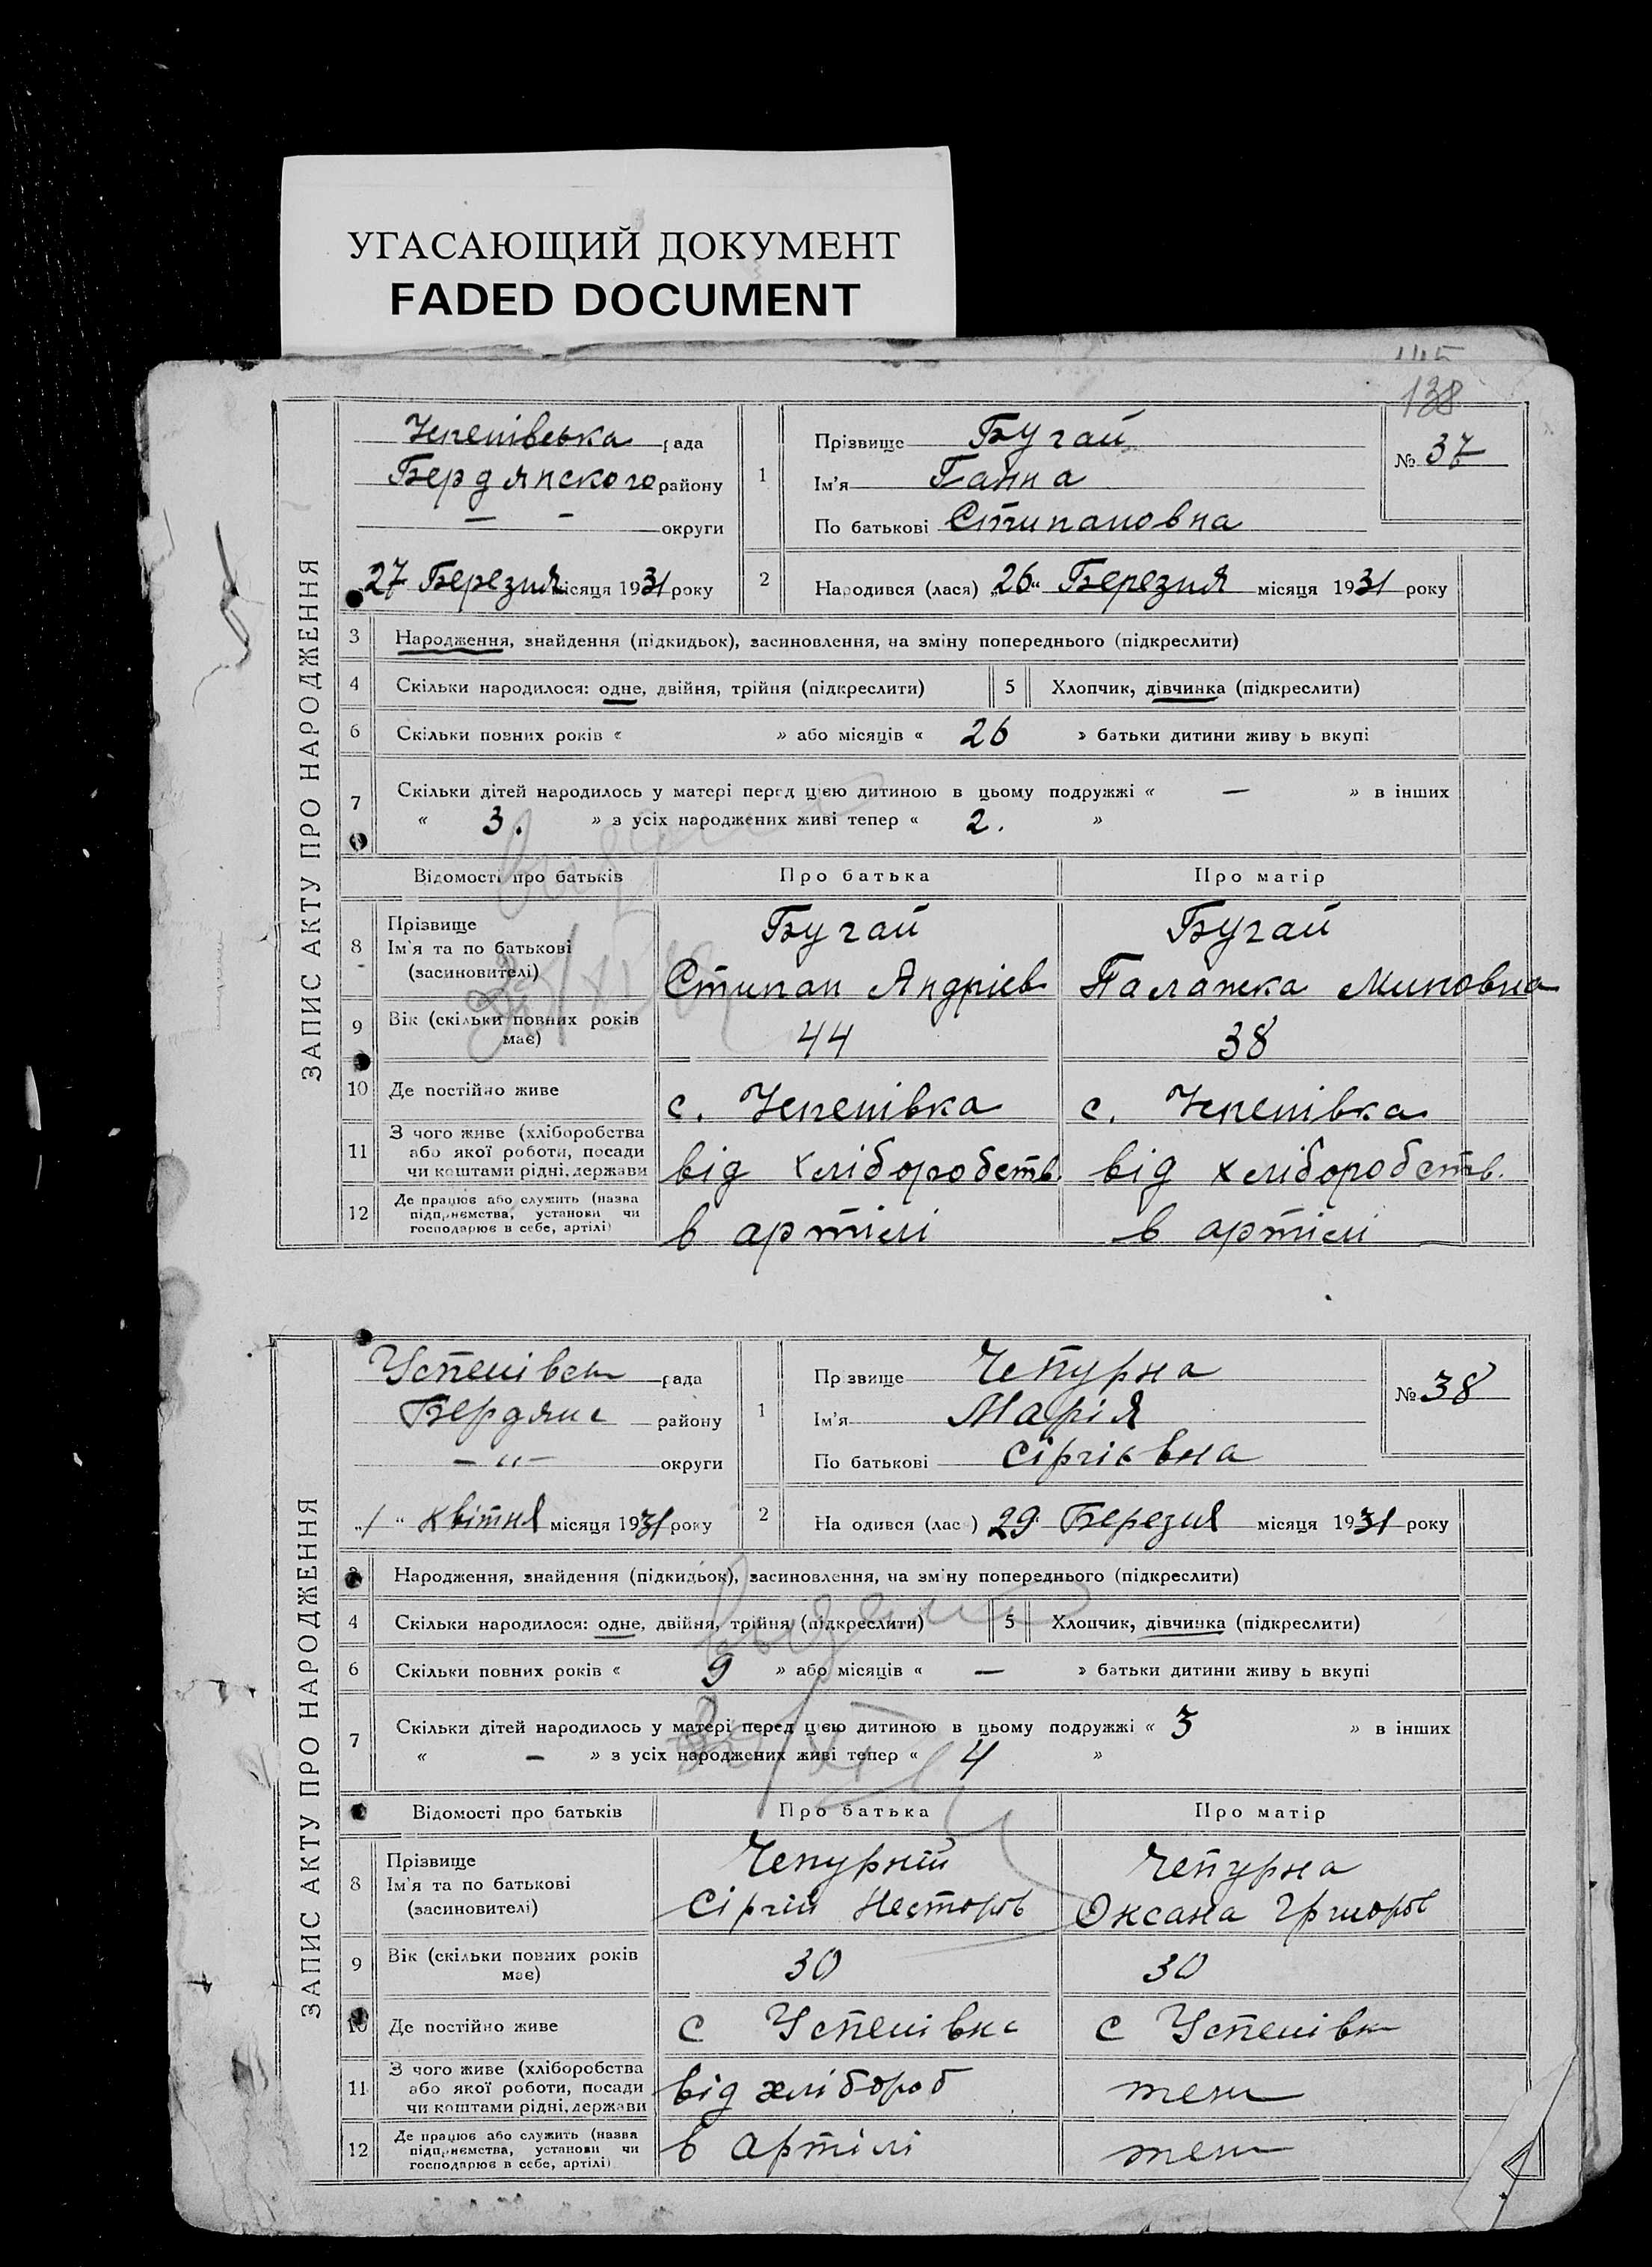 УГАСАЮЩИЙ ДОКУМЕНТ
FADED DOCUMENT
138
ЗАПИС АКТУ ПРО НАРОДЖЕННЯ
Успенівська рада
Бердянского району
— — округи
27 Березня місяця 1931 року
1 Прізвище Бугай
Ім'я Ганна
По батькові Стипановна
№ 37
2 Народився (лася) „26“ Березня місяця 1931 року
3 Народження, знайдення (підкидьок), засиновлення, на зміну попереднього (підкреслити)
4 Скільки народилося: одне, двійня, трійня (підкреслити) 5 Хлопчик, дівчинка (підкреслити)
6 Скільки повних років « » або місяців « 26 » батьки дитини живу ь вкупі
7 Скільки дітей народилось у матері перед цією дитиною в цьому подружжі « — » в інших
« 3. » з усіх народжених живі тепер « 2. »
Відомості про батьків Про батька Про матір
8 Прізвище Бугай Бугай
Ім'я та по батькові
(засиновителі) Стипан Андріев Палажка Миновна
9 Вік (скільки повних років
має) 44 38
10 Де постійно живе с. Успенівка с. Успенівка
11 З чого живе (хліборобства
або якої роботи, посади
чи коштами рідні, держави від хліборобств. від хліборобств.
12 Де працює або служить (назва
підприємства, установи чи
господарює в себе, артілі) в артілі в артілі
ЗАПИС АКТУ ПРО НАРОДЖЕННЯ
Успенівськ рада
Бердянс району
— “ — округи
„1“ квітня місяця 1931 року
1 Пр звище Чепурна
Ім'я Марія
По батькові Сіргієвна
№ 38
2 На одився (лас ) 29 Березня місяця 1931 року
Народження, знайдення (підкидьок), засиновлення, на зміну попереднього (підкреслити)
4 Скільки народилося: одне, двійня, трійня (підкреслити) 5 Хлопчик, дівчинка (підкреслити)
6 Скільки повних років « 9 » або місяців « — » батьки дитини живу ь вкупі
7 Скільки дітей народилось у матері перед цією дитиною в цьому подружжі « 3 » в інших
« — » з усіх народжених живі тепер « 4 »
Відомості про батьків Про батька Про матір
8 Прізвище Чепурний Чепурна
Ім'я та по батькові
(засиновителі) Сіргій Несторов Оксана Григоров
9 Вік (скільки повних років
має) 30 30
10 Де постійно живе с Успенівка с Успенівк
11 З чого живе (хліборобства
або якої роботи, посади
чи коштами рідні, держави від хлібороб теж
12 Де працює або служить (назва
підприємства, установи чи
господарює в себе, артілі) в артілі теж